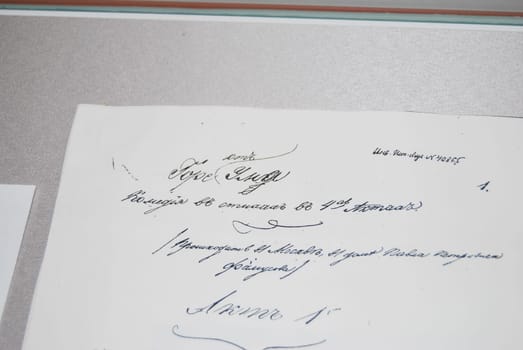 Инв. №40255
1.
Горе отъ Ума
Комедія въ стихахъ въ 4хъ Актахъ.
/Происходитъ въ Москвѣ, въ домѣ Павла
Фамусова/
Актъ 1й